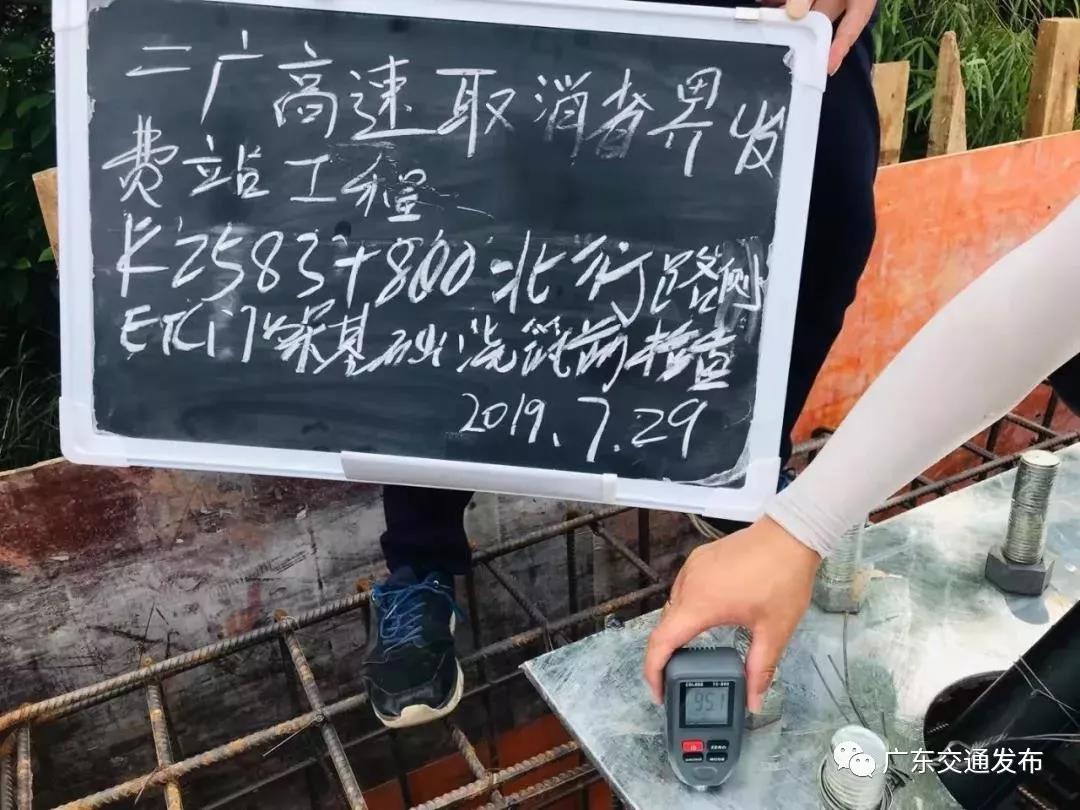 二广高速取消者界发
费站工程
K2583+800北行路侧
ETC门架基础浇筑前检查
2019.7.29
95.1
ZERO
广东交通发布